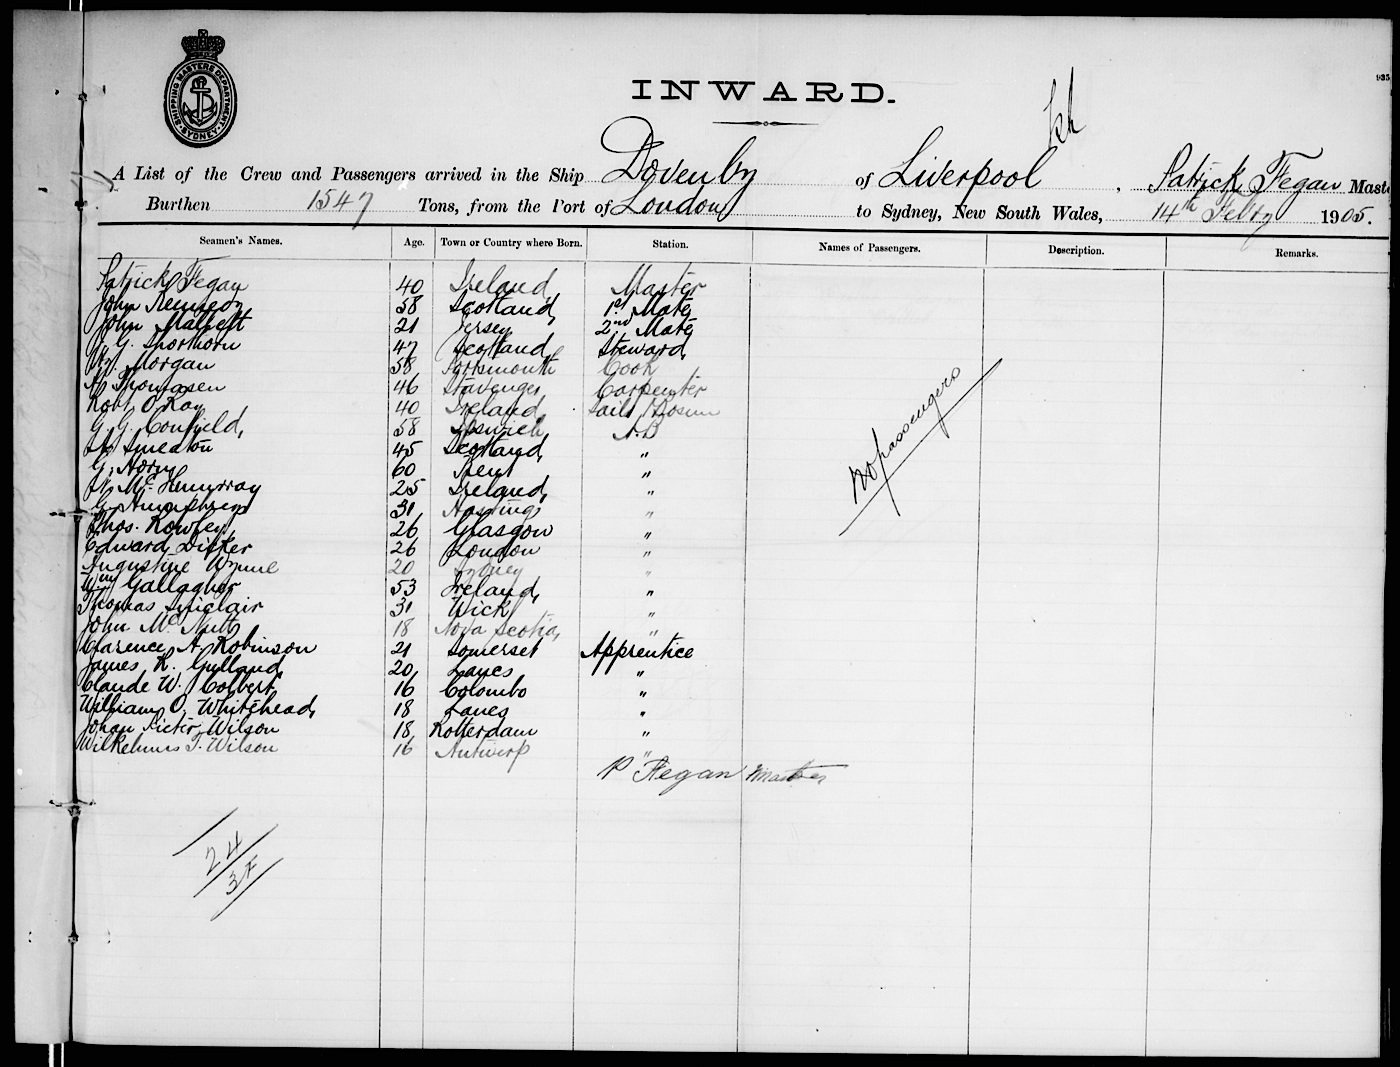 SHIPPING MASTERS DEPARTMENT. SYDNEY
935
INWARD.
A List of the Crew and Passengers arrived in the Ship Dovenby of Liverpool, Patrick Fegan Maste
Burthen 1547 Tons, from the Port of London to Sydney, New South Wales, 14th Feby 1905.
Seamen's Names. Age. Town or Country where Born. Station. Names of Passengers. Description. Remarks.
Patrick Fegan 40 Ireland Master
John 58 Scotland 1st Mate
John Malpett 21 Jersey 2nd Mate
J. G. Shorthorn 47 Scotland Steward
Wm. Morgan 58 Portsmouth Cook
Thomasen 46 Stavenger Carpenter
Robt O'Kay 40 Ireland Sails / Bosun
G. G. Confield 58 Ipswich A.B
Smeaton 45 Scotland "
G. Horn 60 Kent "
McHenwray 25 Ireland "
G. Humphries 31 Hastings "
Thos. Rowley 26 Glasgow "
Edward Dicker 26 London "
Augustine Wynne 20 Sydney "
Wm Gallagher 53 Ireland "
Thomas Sinclair 31 Wick "
John McNutt 18 Nova Scotia "
Clarence A. Robinson 21 Somerset Apprentice
James K. Gulland 20 Lancs "
Claude W. Colbert 16 Colombo "
William O. Whitehead 18 Lancs "
Johan Pieter Wilson 18 Rotterdam "
Wilhelmus T. Wilson 16 Antwerp "
P Fegan Master
No passengers
24
37